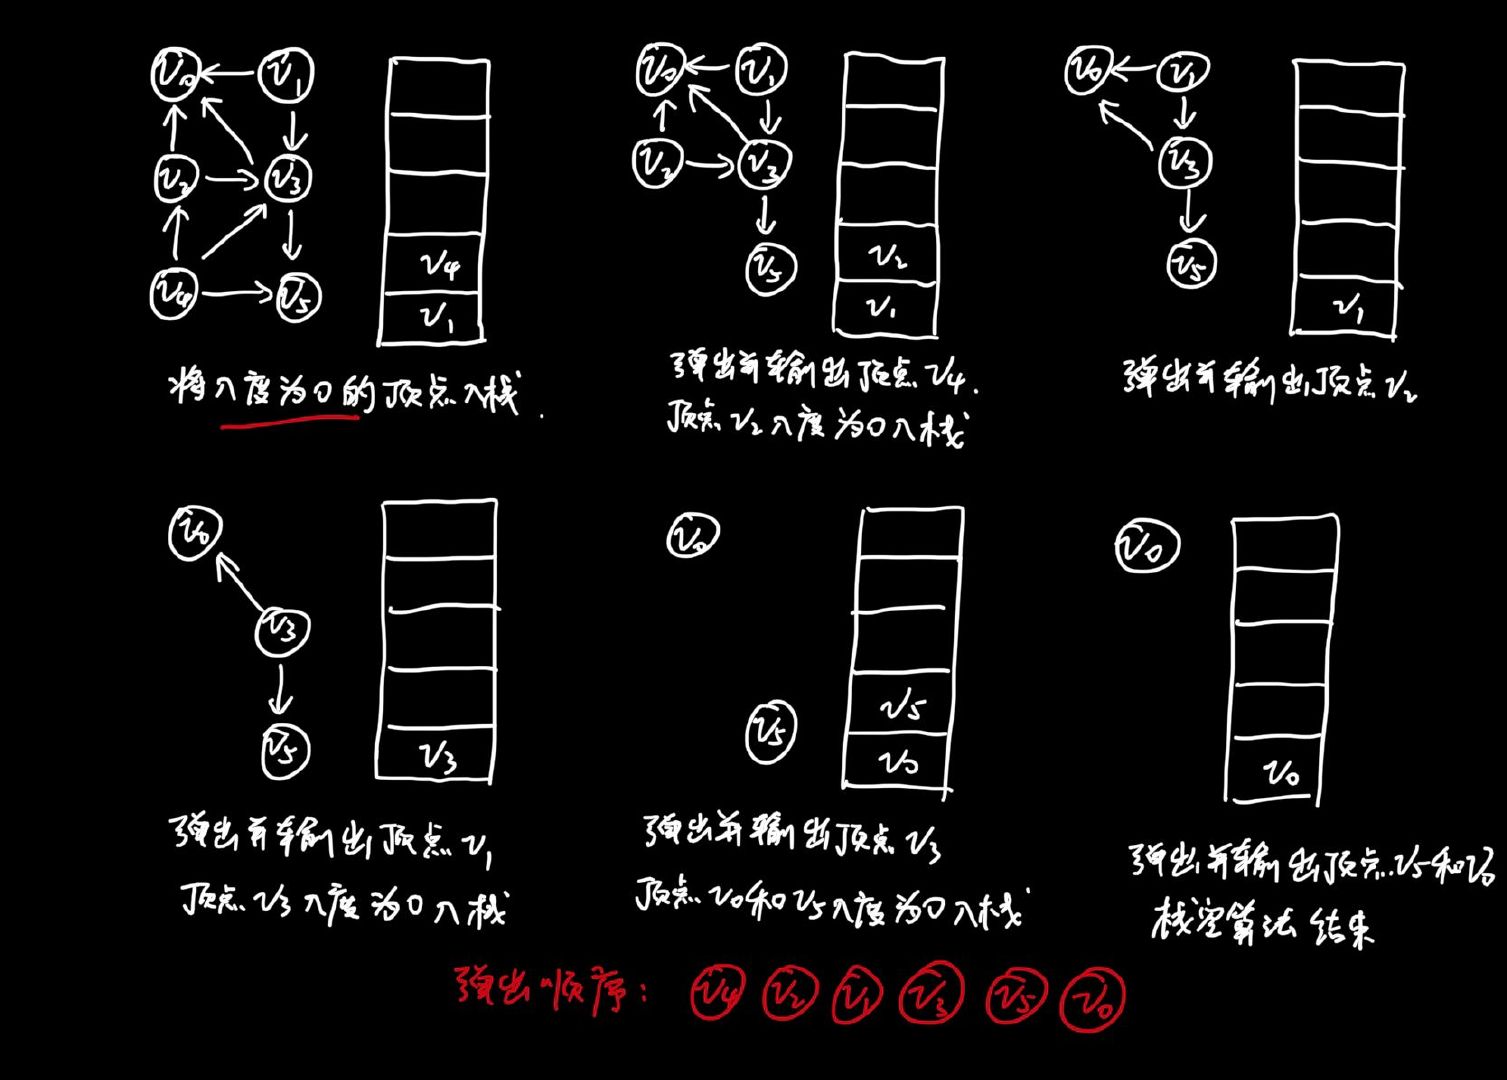 v0 v1
v2 v3
v4 v5
v4
v1
将入度为0的顶点入栈.
v0 v1
v2 v3
v5
v2
v1
弹出并输出顶点v4.
顶点v2入度为0入栈
v0 v1
v3
v5
v1
弹出并输出顶点v2
v0
v3
v5
v3
弹出并输出顶点v1
顶点v3入度为0入栈
v0
v5
v5
v0
弹出并输出顶点v3
顶点v0和v5入度为0入栈
v0
v0
弹出并输出顶点v5和v0
栈空算法结束
弹出顺序: v4 v2 v1 v3 v5 v0